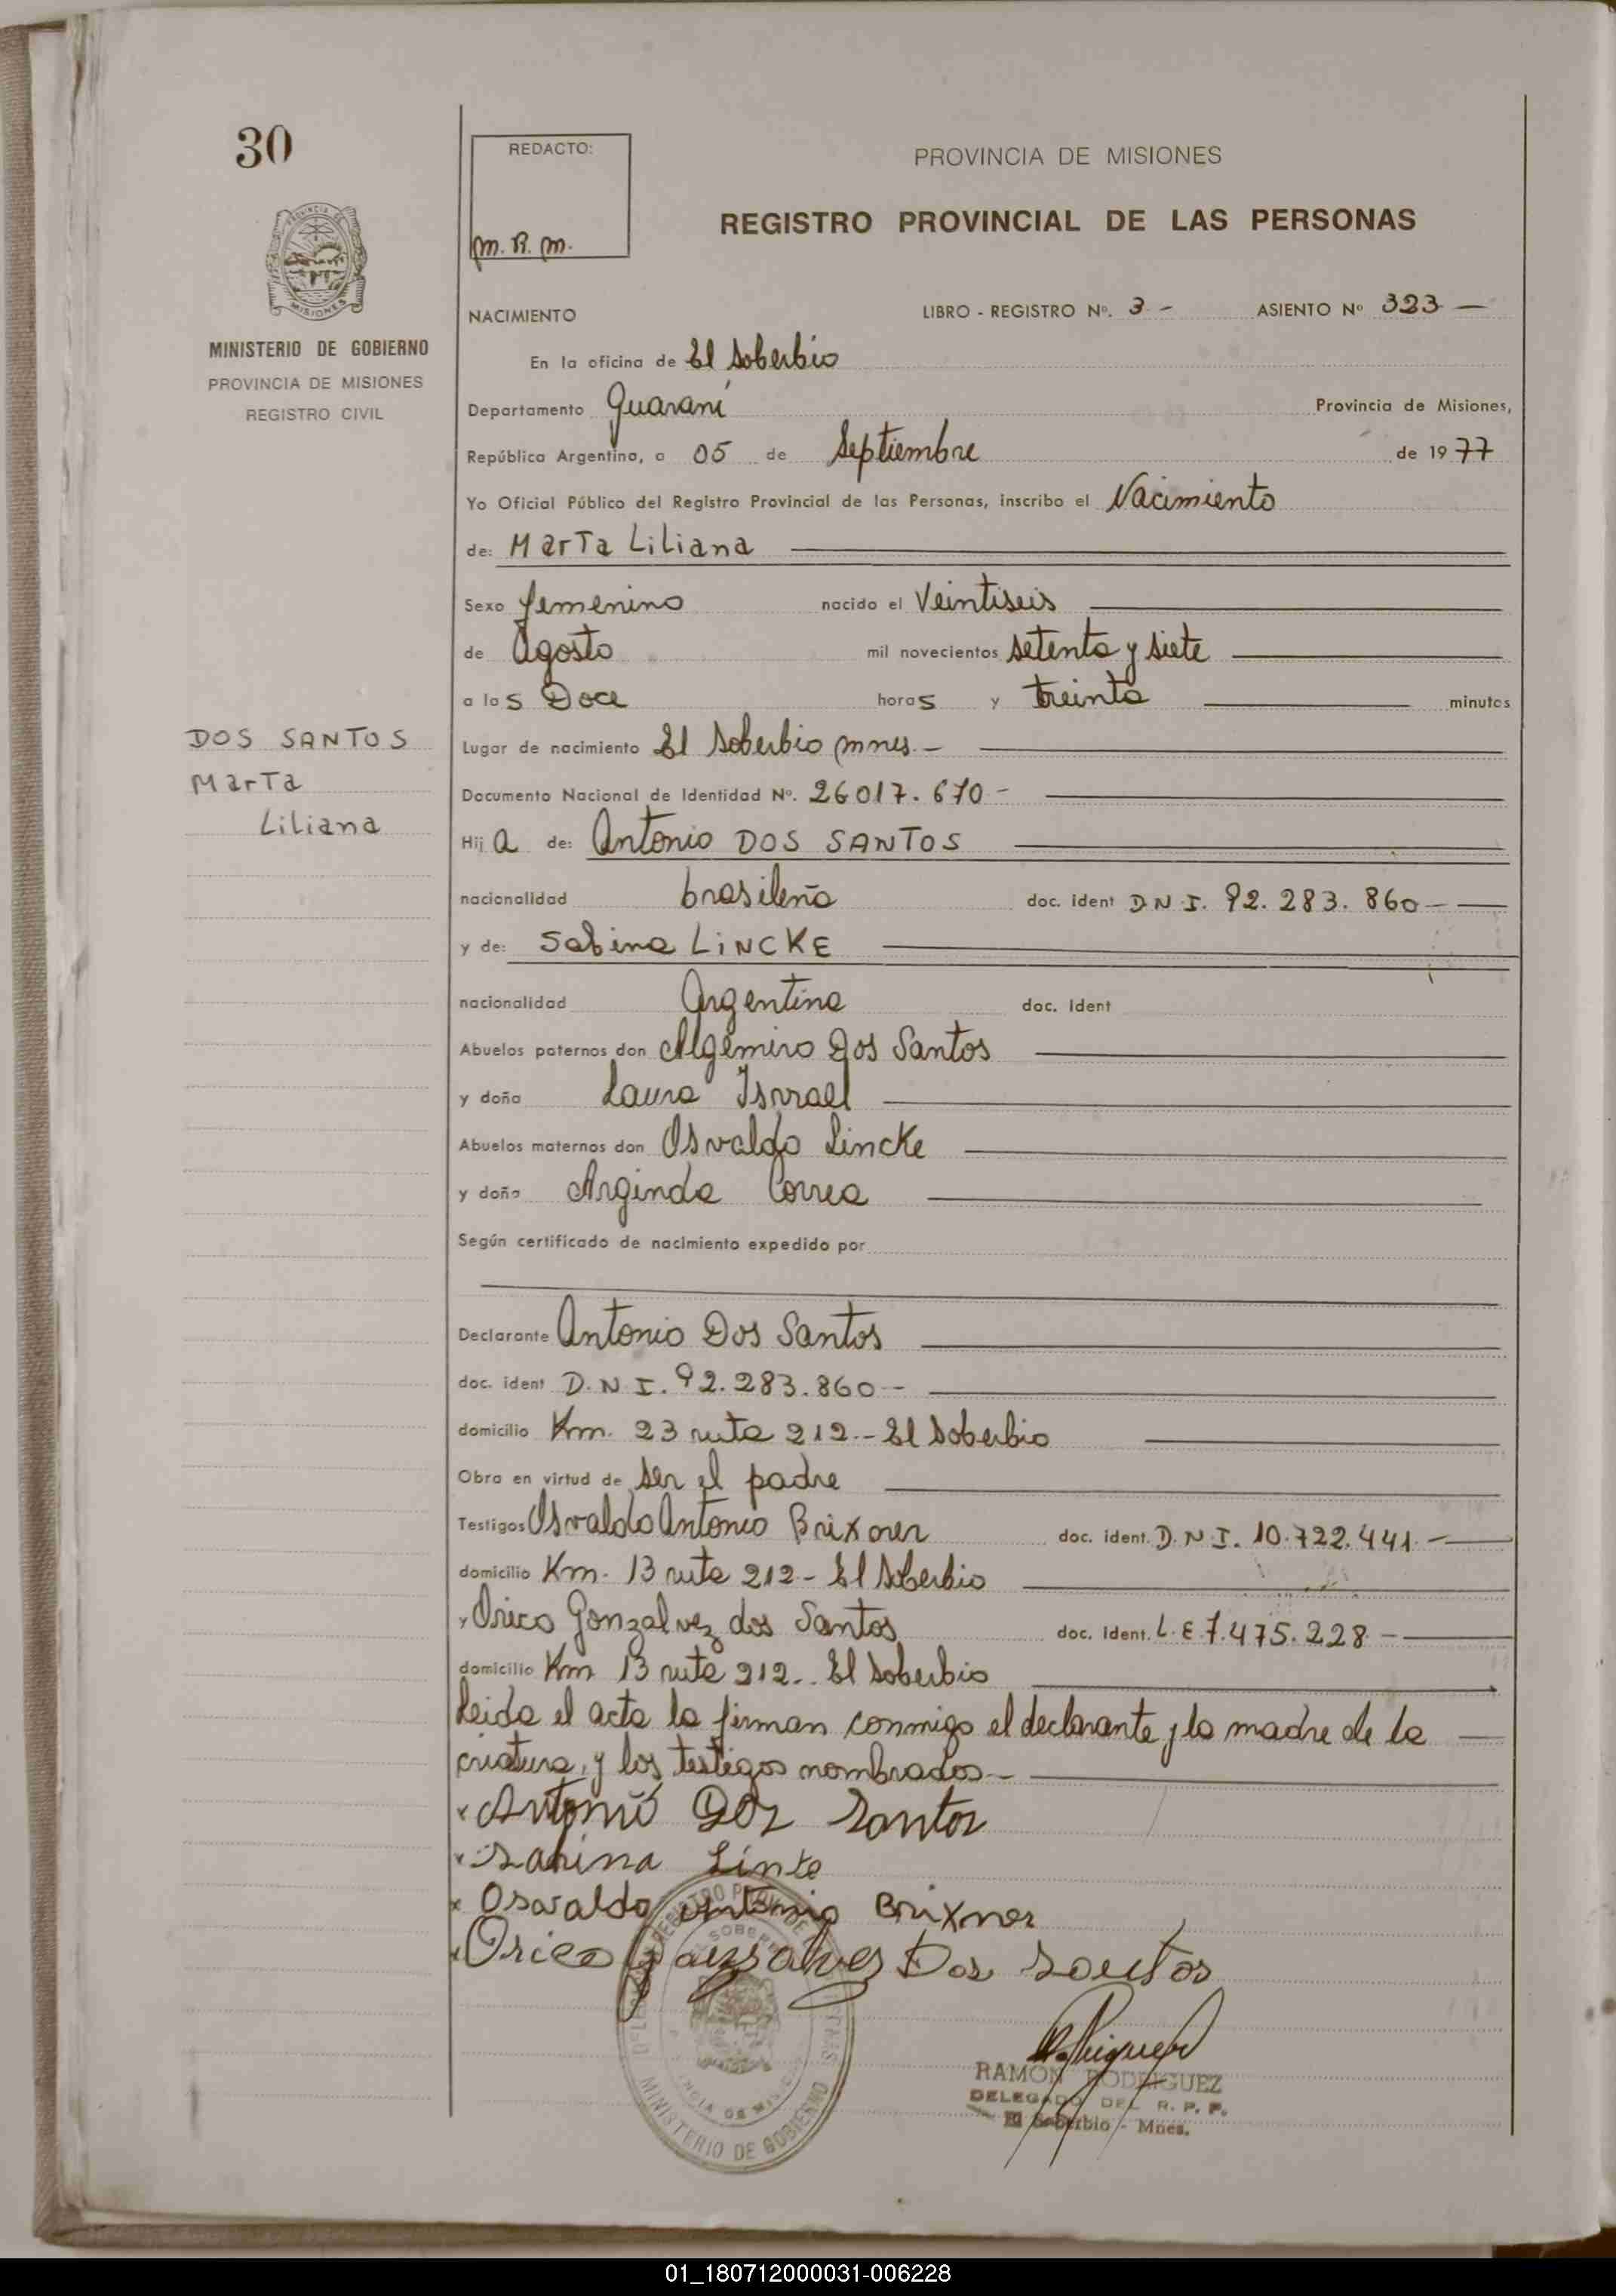 30
REDACTO:
M. R. M.
PROVINCIA DE MISIONES
REGISTRO PROVINCIAL DE LAS PERSONAS
PROVINCIA DE
MISIONES
MINISTERIO DE GOBIERNO
PROVINCIA DE MISIONES
REGISTRO CIVIL
NACIMIENTO LIBRO - REGISTRO Nº. 3 - ASIENTO Nº 323 -
En la oficina de El Soberbio
Departamento Guaraní Provincia de Misiones,
República Argentina, a 05 de Septiembre de 1977
Yo Oficial Público del Registro Provincial de las Personas, inscribo el Nacimiento
de: Marta Liliana
Sexo femenino nacido el Veintiseis
de Agosto mil novecientos setenta y siete
a las Doce horas y treinta minutos
DOS SANTOS
Marta
Liliana
Lugar de nacimiento El Soberbio Mnes. -
Documento Nacional de Identidad Nº. 26017.670 -
Hija de: Antonio DOS SANTOS
nacionalidad brasileña doc. ident D.N.I. 92.283.860 -
y de: Sabina LINCKE
nacionalidad Argentina doc. Ident
Abuelos paternos don Algemiro Dos Santos
y doña Laura Isrrael
Abuelos maternos don Osvaldo Lincke
y doña Arginda Correa
Según certificado de nacimiento expedido por
Declarante Antonio Dos Santos
doc. ident D.N.I. 92.283.860 -
domicilio Km. 23 ruta 212 - El Soberbio
Obra en virtud de ser el padre
Testigos Osvaldo Antonio Brixner doc. ident. D.N.I. 10.722.441 -
domicilio Km. 13 ruta 212 - El Soberbio
y Orico Gonzalvez dos Santos doc. Ident. L.E 7.475.228 -
domicilio Km 13 ruta 212 - El Soberbio
Leida el acta la firman conmigo el declarante y la madre de la
criatura, y los testigos nombrados -
x Antonio Dos Santos
x Sabina Linke
x Osvaldo Antonio Brixner
x Orico Gonzalves Dos Santos
MINISTERIO DE GOBIERNO
RAMON RODRIGUEZ
DELEGADO DEL R. P. P.
El Soberbio - Mnes.
01_180712000031-006228